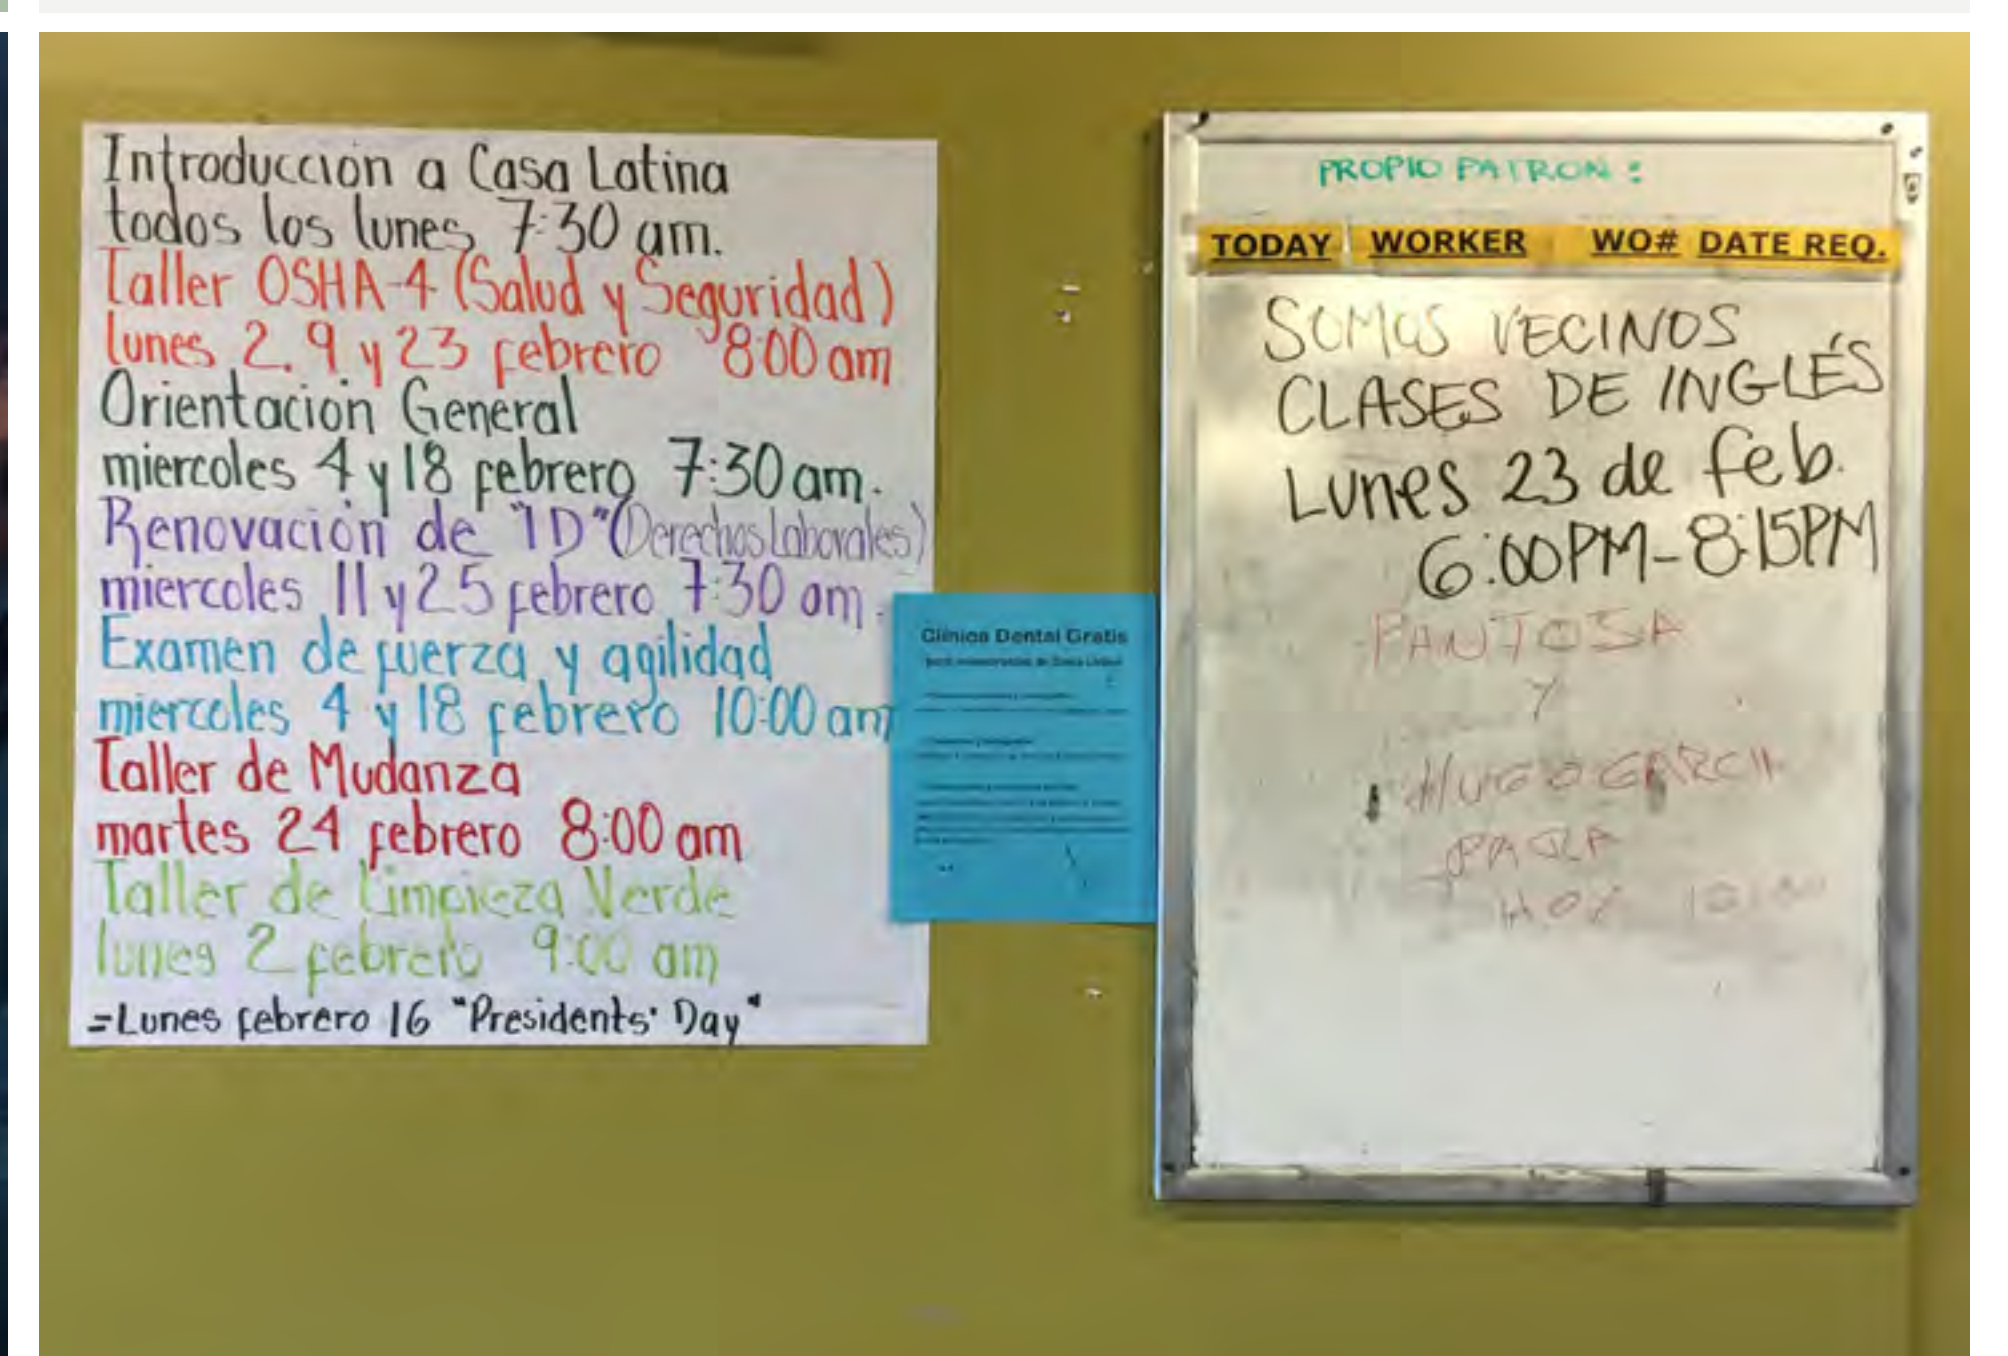 Introducción a Casa Latina
todos los lunes 7:30 am.
Taller OSHA-4 (Salud y Seguridad)
lunes 2. 9 y 23 febrero 8:00 am
Orientación General
miercoles 4 y 18 febrero 7:30 am.
Renovación de "ID" (Derechos Laborales)
miercoles 11 y 25 febrero 7:30 am.
Examen de fuerza y agilidad
miercoles 4 y 18 febrero 10:00 am
Taller de Mudanza
martes 24 febrero 8:00 am
Taller de Limpieza Verde
lunes 2 febrero 9:00 am
=Lunes febrero 16 "Presidents' Day"
Clínica Dental Gratis
PROPIO PATRON:
TODAY WORKER WO# DATE REQ.
SOMOS VECINOS
CLASES DE INGLÉS
Lunes 23 de feb.
6:00PM-8:15PM
PANTOSA
Y
HUGO GARCIA
PARA
HOY